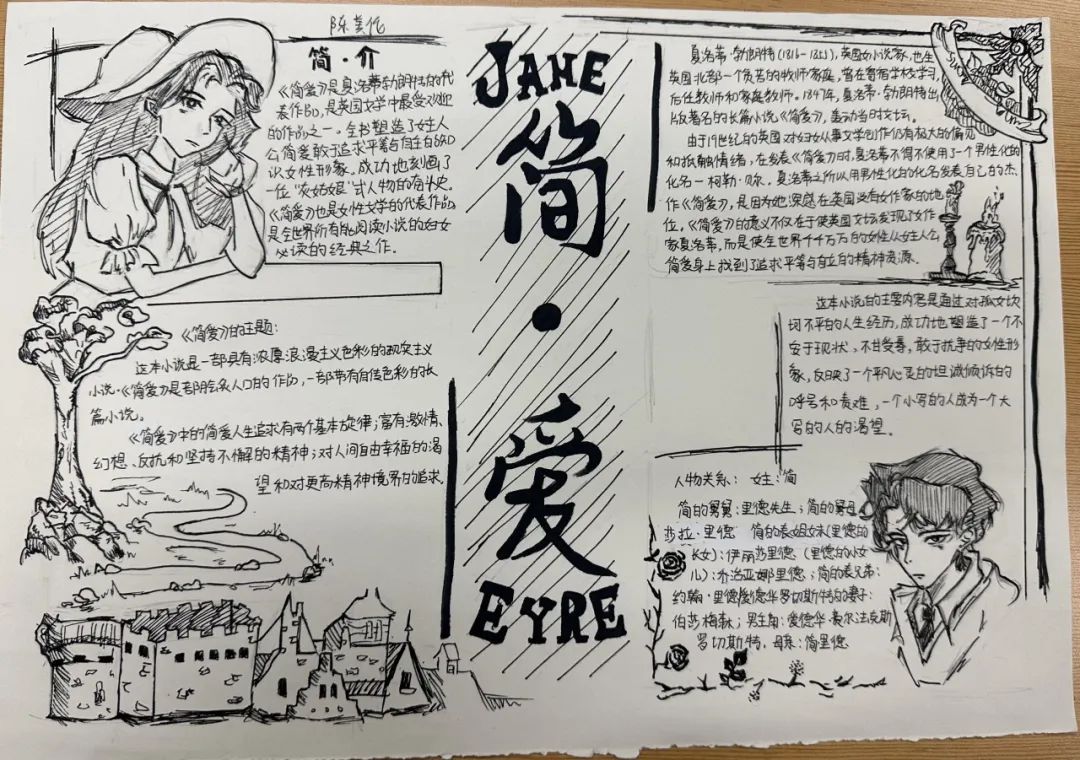 陈
简·介
《简爱》是夏洛蒂勃朗特的代
表作品,是英国文学中最受欢迎
的作品之一。全书塑造了女主人
公简爱敢于追求平等与自主的
识女性形象。成功地刻画了
一位“灰姑娘”式人物的奋斗史。
《简爱》也是女性文学的代表作品,
是全世界所有能阅读小说的妇女
必读的经典之作。
《简爱》的主题:
这本小说是一部具有浓厚浪漫主义色彩的现实主义
小说。《简爱》是部脍炙人口的作品,一部带有自传色彩的长
篇小说。
《简爱》中的简爱人生追求有两个基本旋律;富有激情、
幻想、反抗和坚持不懈的精神;对人间自由幸福的渴
望和对更高精神境界的追求
JANE
简·爱
EYRE
夏洛蒂·勃朗特(1816-1855),英国女小说家,也生
英国北部一个贫苦的牧师家庭,曾在寄宿学校学习,
后任教师和家庭教师。1847年,夏洛蒂·勃朗特出
版著名的长篇小说《简爱》,轰动当时文坛。
由于19世纪的英国对妇女从事文学创作仍有极大的偏见
和抵触情绪,在发表《简爱》时,夏洛蒂不得不使用了一个男性化的
化名—柯勒·贝尔。夏洛蒂之所以用男性化的化名发表自己的杰
作《简爱》,是因为她深感在英国没有女作家的地
位。《简爱》的意义不仅在于使英国文坛发现了女作
家夏洛蒂,而是使全世界千千万万的女性从女主人公
简爱身上找到了追求平等与自立的精神资源.
这本小说的主要内容是通过对孤女坎
坷不平的人生经历,成功地塑造了一个不
安于现状、不甘受辱,敢于抗争的女性形
象,反映了一个平凡心灵的坦诚倾诉的
呼号和责难,一个小写的人成为一个大
写的人的渴望.
人物关系: 女主:简
简的舅舅:里德先生;简的舅母
莎拉·里德 简的表姐妹(里德的
长女):伊丽莎里德 (里德的小女
儿):乔治亚娜里德;简的表兄弟:
约翰·里德;爱德华罗切斯特的妻子:
伯莎梅森;男主角:爱德华·费尔法克斯
罗切斯特。母亲:简里德